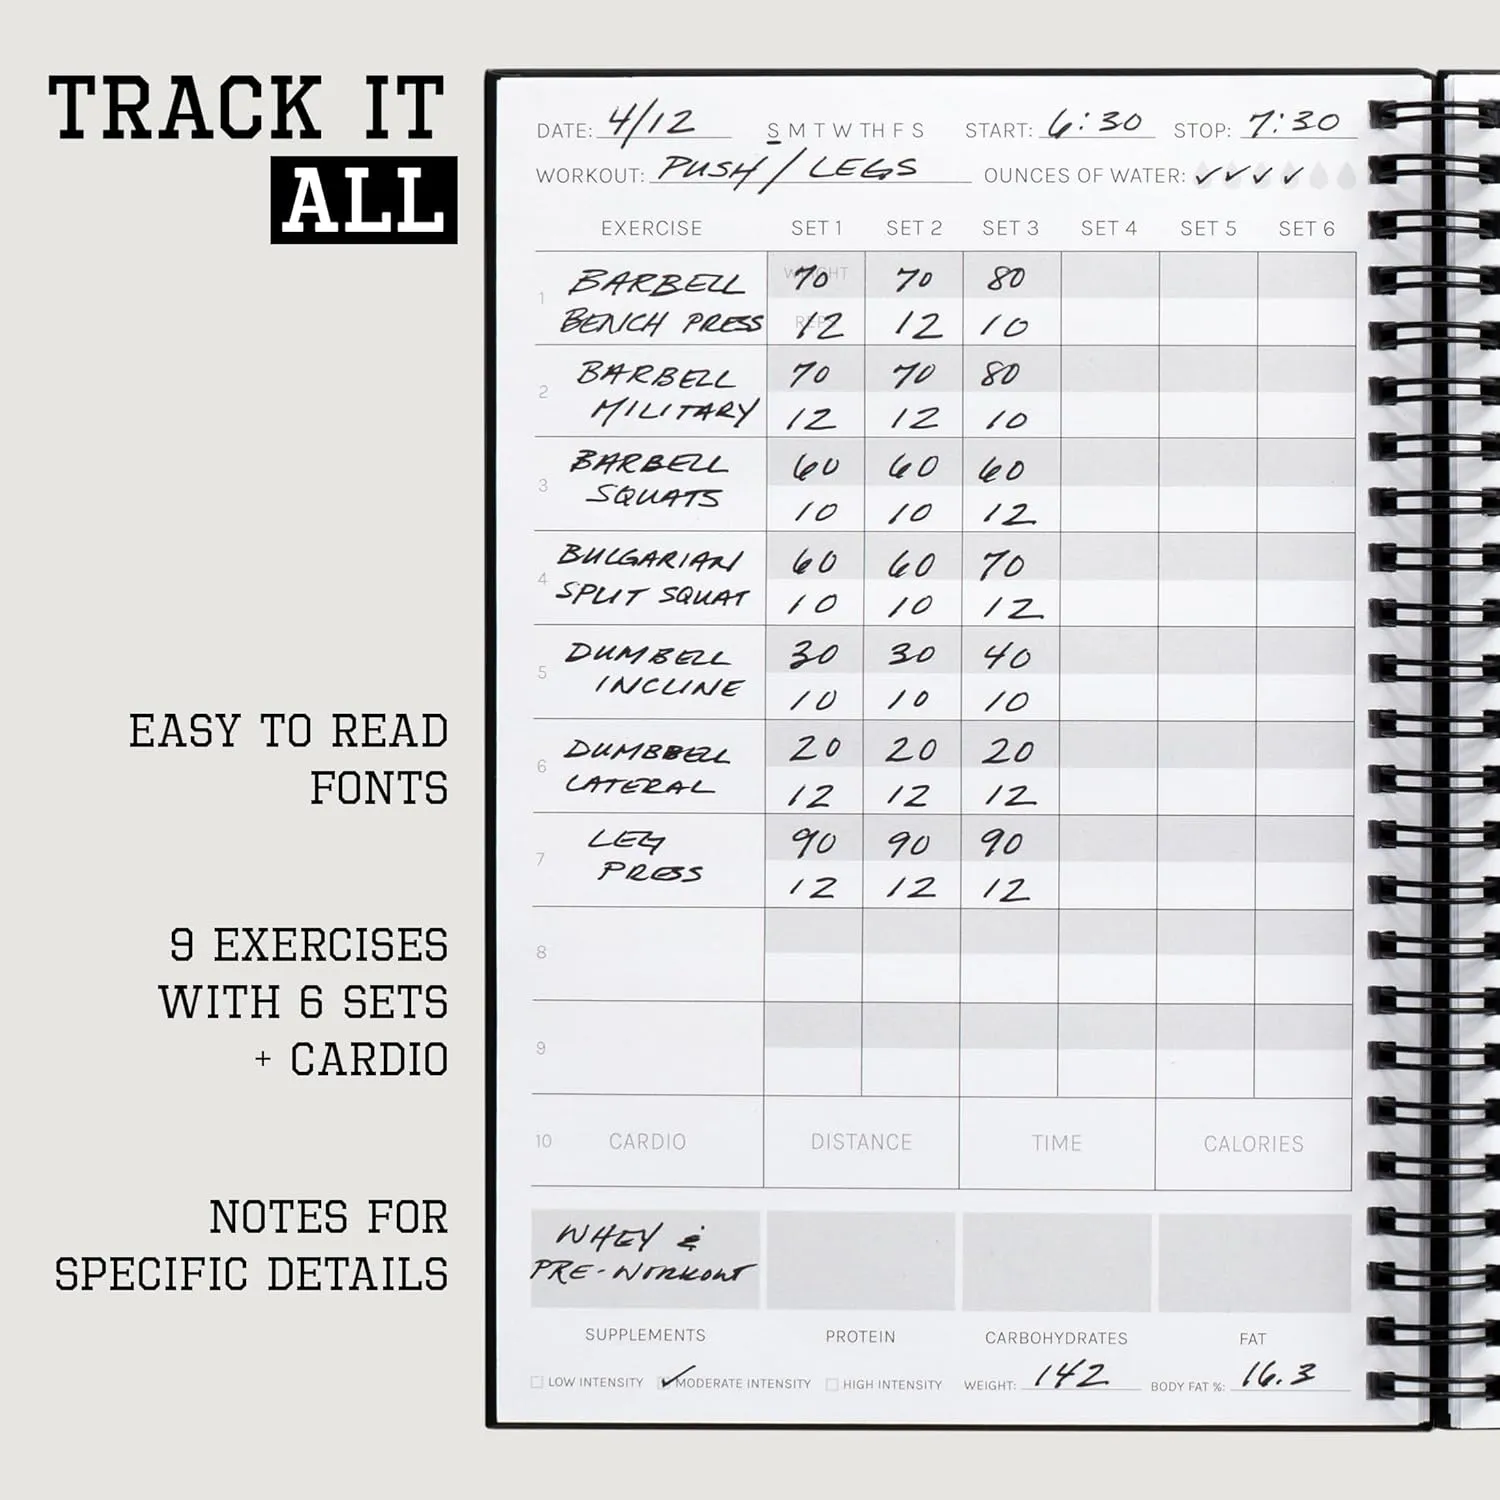 TRACK IT
ALL
EASY TO READ
FONTS
9 EXERCISES
WITH 6 SETS
+ CARDIO
NOTES FOR
SPECIFIC DETAILS
DATE: 4/12 S M T W TH F S START: 6:30 STOP: 7:30
WORKOUT: PUSH / LEGS OUNCES OF WATER: ✓ ✓ ✓ ✓
EXERCISE SET 1 SET 2 SET 3 SET 4 SET 5 SET 6
WEIGHT
1 BARBELL 70 70 80
REPS
BENCH PRESS 12 12 10
2 BARBELL 70 70 80
MILITARY 12 12 10
3 BARBELL 60 60 60
SQUATS 10 10 12
4 BULGARIAN 60 60 70
SPLIT SQUAT 10 10 12
5 DUMBELL 30 30 40
INCLINE 10 10 10
6 DUMBBELL 20 20 20
LATERAL 12 12 12
7 LEG 90 90 90
PRESS 12 12 12
8
9
10 CARDIO DISTANCE TIME CALORIES
WHEY &
PRE-WORKOUT
SUPPLEMENTS PROTEIN CARBOHYDRATES FAT
LOW INTENSITY ✓ MODERATE INTENSITY HIGH INTENSITY WEIGHT: 142 BODY FAT %: 16.3